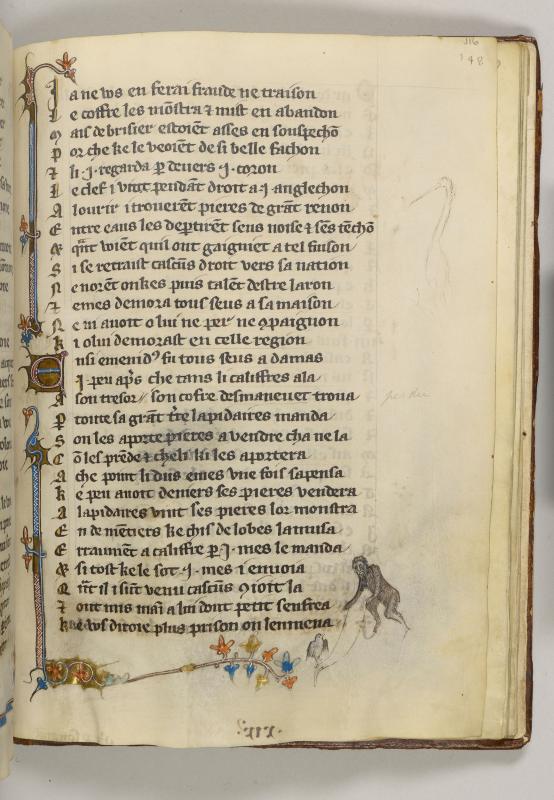 116
148
Ia ne ws en ferai fraude ne traison
Le coffre les mōstra ⁊ mist en abandon
Mais de brisier estoiēt asses en souspechō
Por che ke le veoiēt de si belle fachon
⁊ li .j. regarda p̱ deuers .j. coron
Le clef i vint pendāt droit a .j. anglechon
A lourir i trouerēt pieres de grāt renon
Entre eaus les deptirēt seus noise ⁊ sēs tēchō
Et qāt voiēt quil ont gaigniet a tel fuison
Si se retraist cascūs droit vers sa nation
Ne norēt onkes puis talēt destre laron
⁊ emes demora tous seus a sa maison
Ne ni auoit o lui ne per ne 9paignon
Ki o lui demorast en celle region
Ensi emenid9 fu tous seus a damas
.I. peu ap̄s che tans li califfres ala
A son tresor son cofre desmanevet troua
P toute sa grāt t̄re lapidaires manda
Son les aporte pieres a vendre cha ne la
Cō les prēde ⁊ cheli ki les aportera
A che point li dus emes vne fois sapensa
Ke peu auoit deniers ses pieres vendera
A lapidaires vint ses pieres lor monstra
En demētiers ke chis de lobes lamusa
Enuaumēt a califfre p̱ .j. mes le manda
Et si tost ke le sot .j. mes i enuoia
Qnt il i sūt venu cascūs 9ioit la
⁊ ont mis maī a lui dont petit senfrea
Ke ws diroie plus prison on lenmena